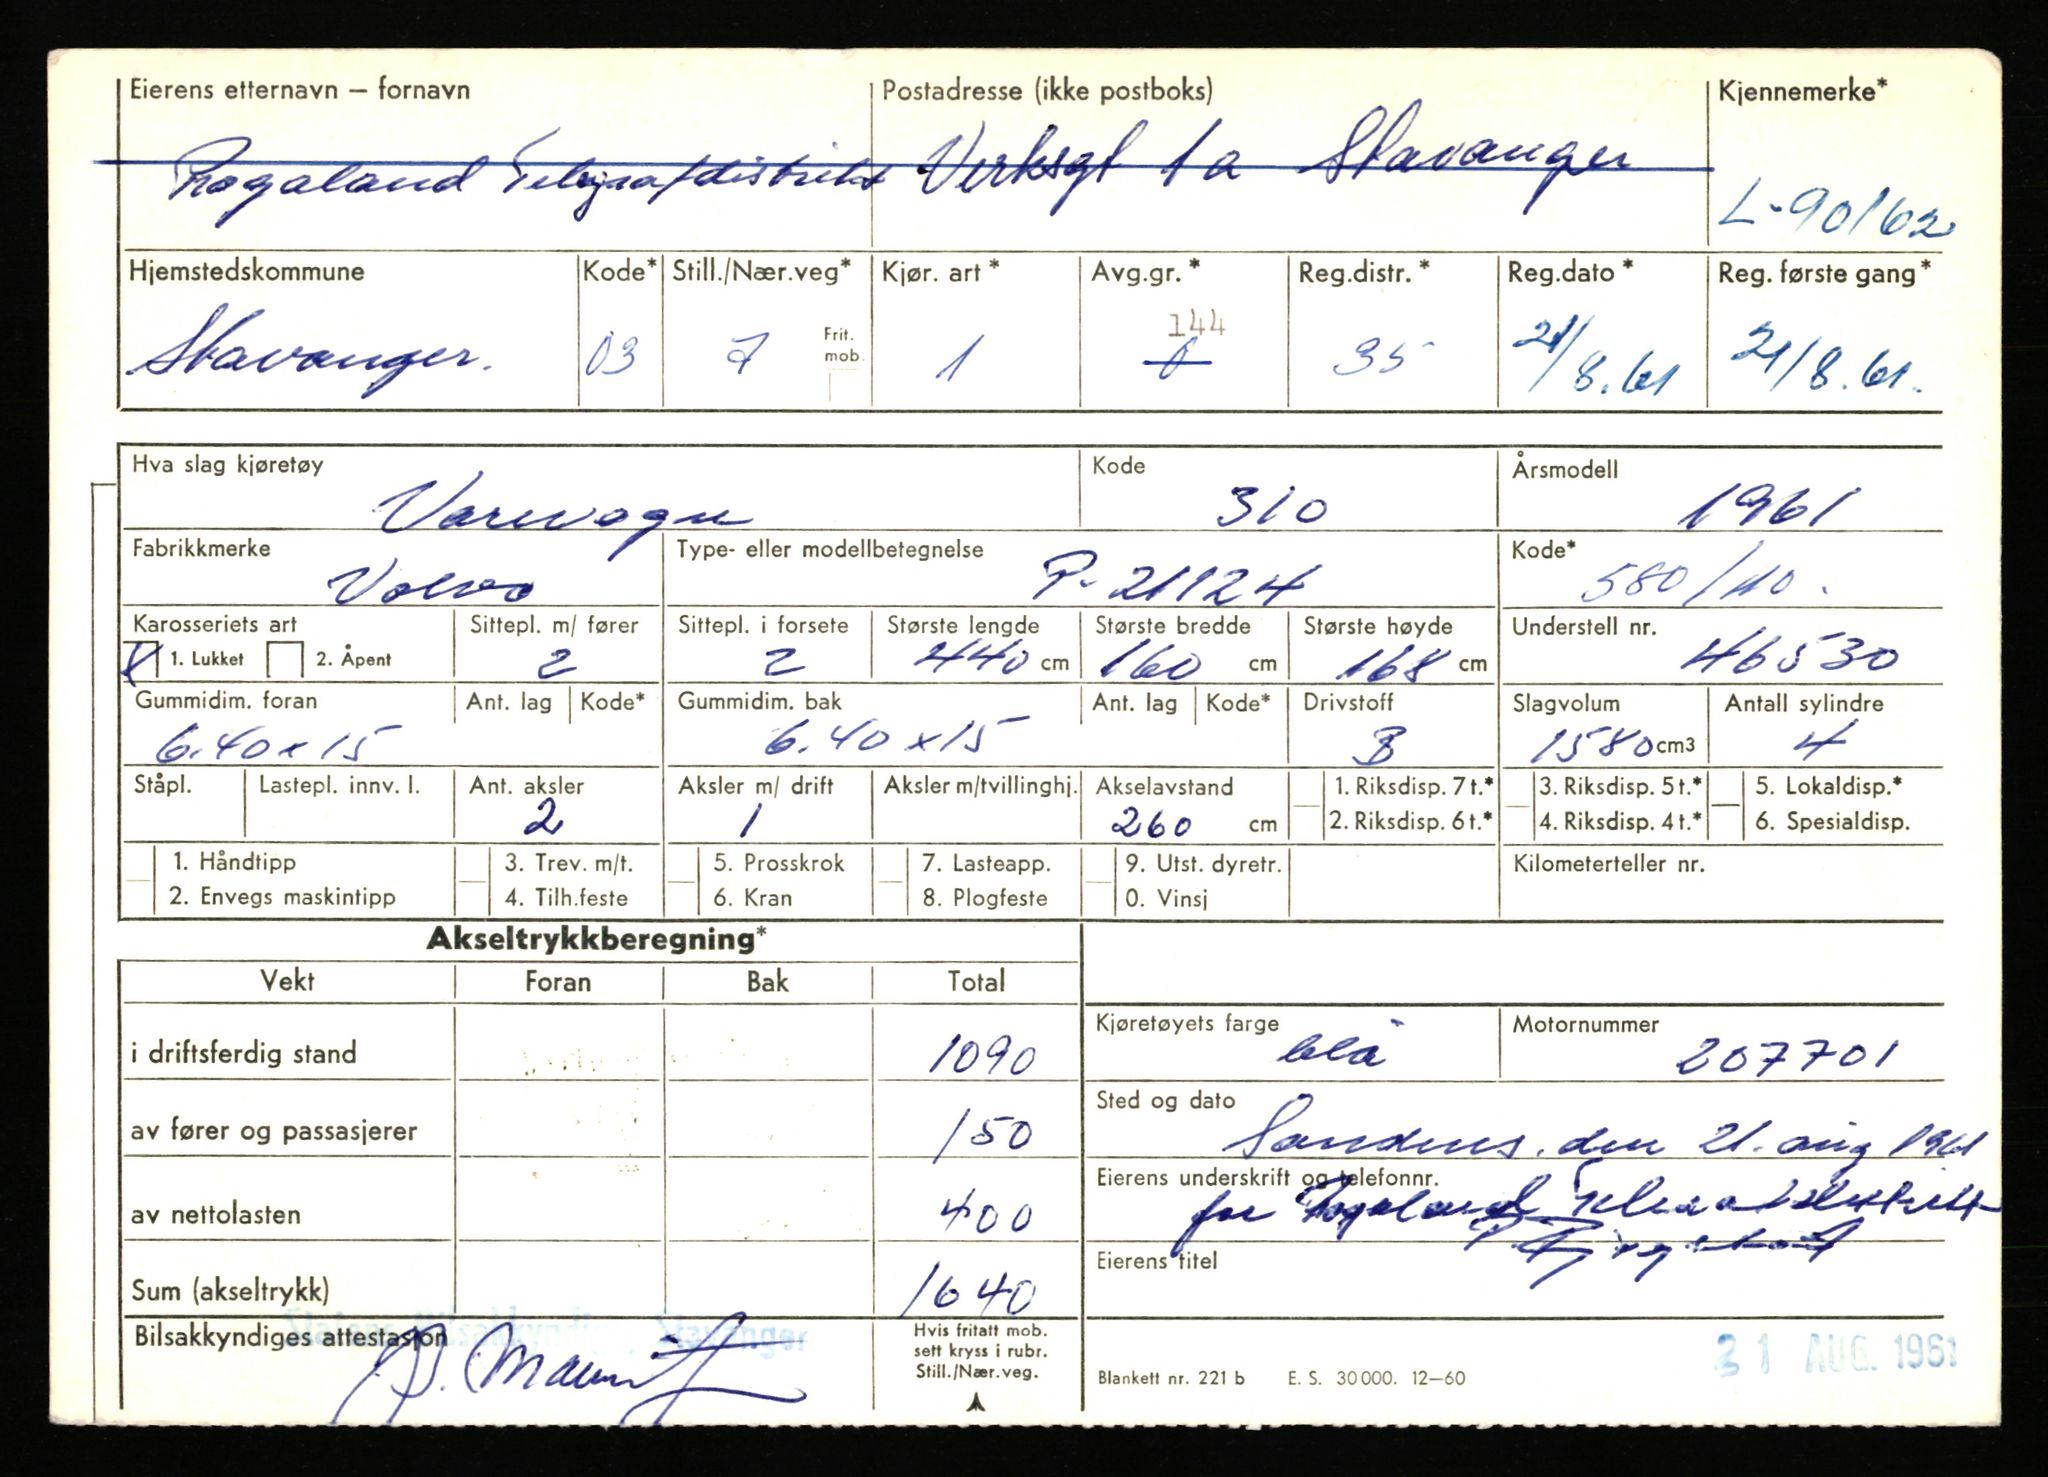 Eierens etternavn – fornavn Postadresse (ikke postboks) Kjennemerke*
Rogaland Telegrafdistrikt Verksgt 1a Stavanger
L-90162
Hjemstedskommune Kode* Still./Nær.veg* Kjør. art* Avg.gr.* Reg.distr.* Reg.dato* Reg. første gang*
144
Stavanger. 03 7 Frit. mob. 1 0 35 21/8.61 21/8.61.
Hva slag kjøretøy Kode Årsmodell
Varevogn 310 1961
Fabrikkmerke Type- eller modellbetegnelse Kode*
Volvo P-21124 580/110.
Karosseriets art Sittepl. m/ fører Sittepl. i forsete Største lengde Største bredde Største høyde Understell nr.
X 1. Lukket 2. Åpent 2 2 440 cm 160 cm 168 cm 46530
Gummidim. foran Ant. lag Kode* Gummidim. bak Ant. lag Kode* Drivstoff Slagvolum Antall sylindre
6.40x15 6.40x15 B 1580 cm3 4
Ståpl. Lastepl. innv. l. Ant. aksler Aksler m/ drift Aksler m/tvillinghj. Akselavstand 1. Riksdisp. 7 t.* 3. Riksdisp. 5 t.* 5. Lokaldisp.*
2 1 260 cm 2. Riksdisp. 6 t.* 4. Riksdisp. 4 t.* 6. Spesialdisp.
1. Håndtipp 3. Trev. m/t. 5. Prosskrok 7. Lasteapp. 9. Utst. dyretr. Kilometerteller nr.
2. Envegs maskintipp 4. Tilh.feste 6. Kran 8. Plogfeste 0. Vinsj
Akseltrykkberegning*
Vekt Foran Bak Total
i driftsferdig stand 1090
Kjøretøyets farge Motornummer
blå 207701
av fører og passasjerer 150
Sted og dato
Sandnes, den 21. aug 1961
av nettolasten 400
Eierens underskrift og telefonnr.
for Rogaland Telegrafdistrikt
Sum (akseltrykk) 1640
Eierens titel
Statens Bilsakkyndige, Stavanger
Bilsakkyndiges attestasjon
Hvis fritatt mob.
sett kryss i rubr.
Still./Nær.veg.
Blankett nr. 221 b E. S. 30000. 12–60
21 AUG. 1961